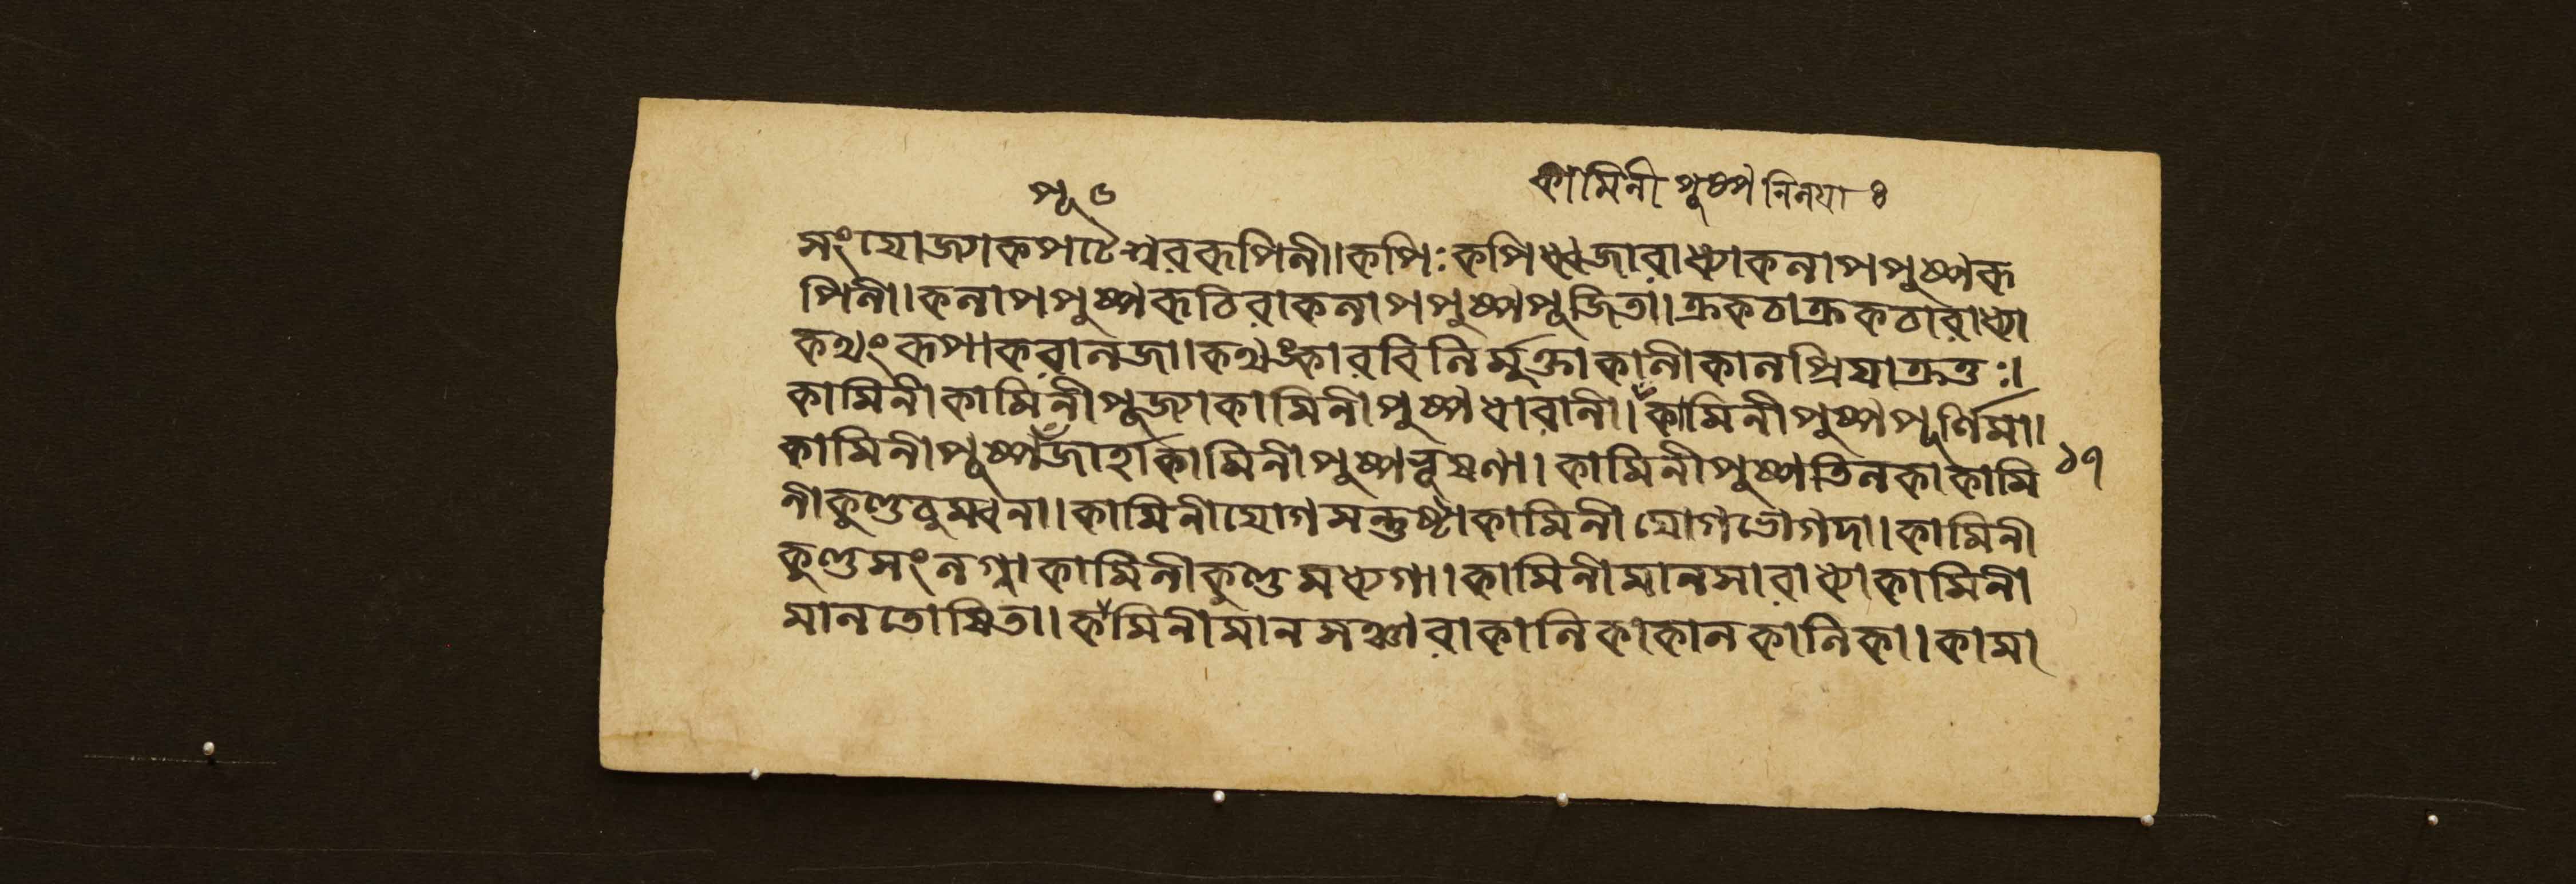 পূ ৫ কামিনীপুষ্পনিনযা ৪
সংযোজ্যাকপটৈশ্বরকপিনী।কপিঃকপিধ্বজারাধ্যাকনাপপুষ্পক
পিনী।কনাপপুষ্পকচিরাকনাপপুষ্পপূজিতা।ক্রকচাক্রকচারাধ্যা
কথংকপাকরানজা।কথঙ্কারবিনির্মুক্তাকানীকানপ্রিযাক্রতুঃ।
কামিনীকামিনীপূজ্যাকামিনীপুষ্পধারানী।কামিনীপুষ্পপূর্ণিমা।
কামিনীপুষ্পজার্হাকামিনীপুষ্পভূষণা।কামিনীপুষ্পতিনকাকামি ১৭
নীকুণ্ডচুম্বনা।কামিনীযোগসন্তুষ্টাকামিনীযোগভোগদা।কামিনী
কুণ্ডসংনগ্নাকামিনীকুণ্ডমধ্যগা।কামিনীমানসারাধ্যাকামিনী
মানতোষিতা।কামিনীমানসঞ্চারাকানিকাকানকানিকা।কামা